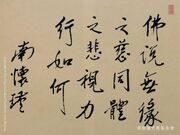 佛説無緣
之慈同體
之悲視力
行如何
南懷瑾